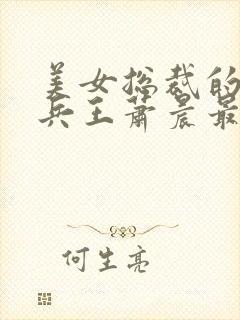 美女总裁的
兵王萧晨最
何生亮